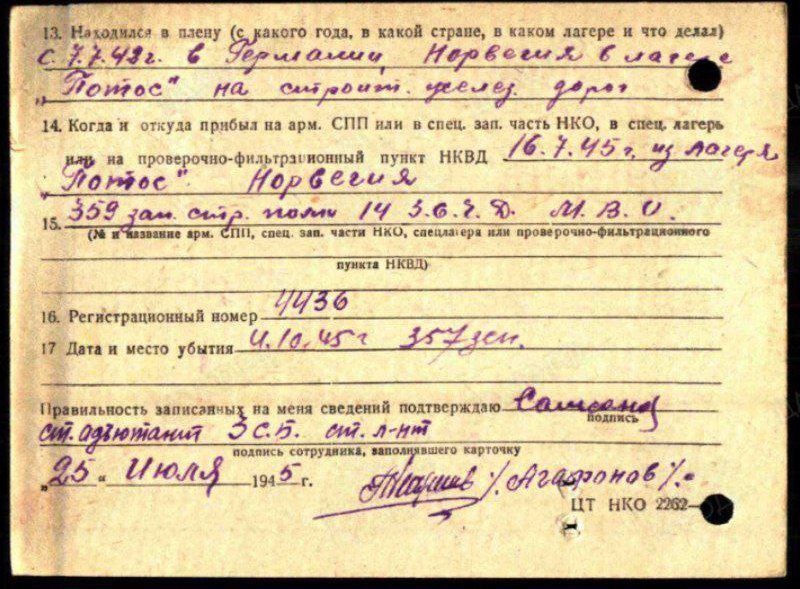 13. Находился в плену (с какого года, в какой стране, в каком лагере и что делал)
с 7.7.42г. в Германии, Норвегия в лагере
„Потос" на строит. желез. дорог
14. Когда и откуда прибыл на арм. СПП или в спец. зап. часть НКО, в спец. лагерь
или на проверочно-фильтрационный пункт НКВД 16.7.45г. из лагеря
"Потос". Норвегия
15. 359 зап. стр. полк 14 З.С.Ч.Д. М.В.О.
(№ и название арм. СПП, спец. зап. части НКО, спецлагеря или проверочно-фильтрационного
пункта НКВД)
16. Регистрационный номер 4436
17 Дата и место убытия 4.10.45г 357 зсп.
Правильность записанных на меня сведений подтверждаю
подпись
ст. адъютант 3 С.Б. ст. л-нт
подпись сотрудника, заполнявшего карточку
„25" Июля 1945 г. /. Агафонов /.-
ЦТ НКО 2262